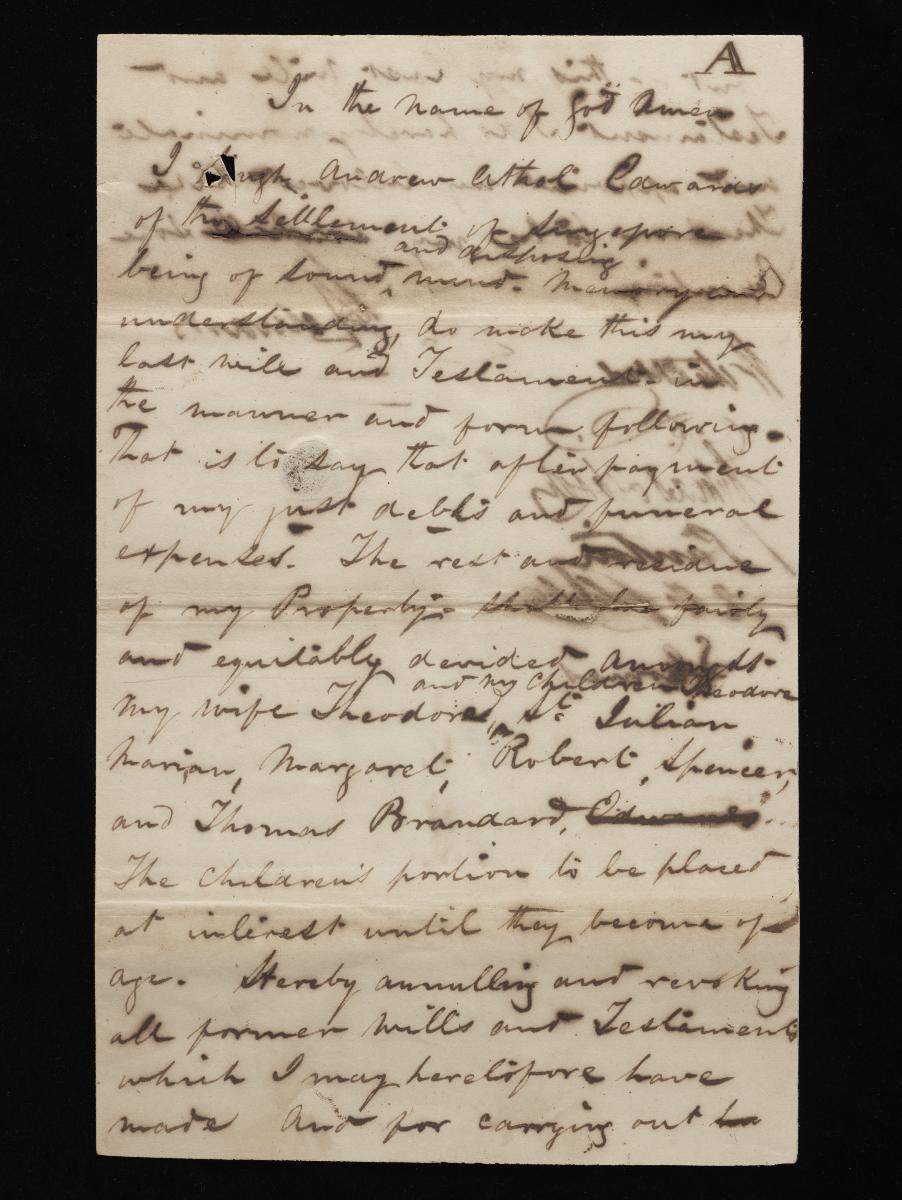 A
In the name of God Amen
I Hugh Andrew Athol Edwards
of the Settlement of Singapore
and disposing
being of sound, mind. Memory and
understanding, do make this my
last will and Testament in
the manner and form following.
That is to say that after payment
of my just debts and funeral
expenses. The rest and residue
of my Property. shall be fairly
and equitably devided amongst
and my children Theodore
my wife Theodora, St. Julian
Marian, Margaret, Robert, Spencer,
and Thomas Brandard, Edwards.
The children's portion to be placed
at interest until they become of
age. Hereby annulling and revoking
all former Wills and Testaments
which I may heretofore have
made And for carrying out